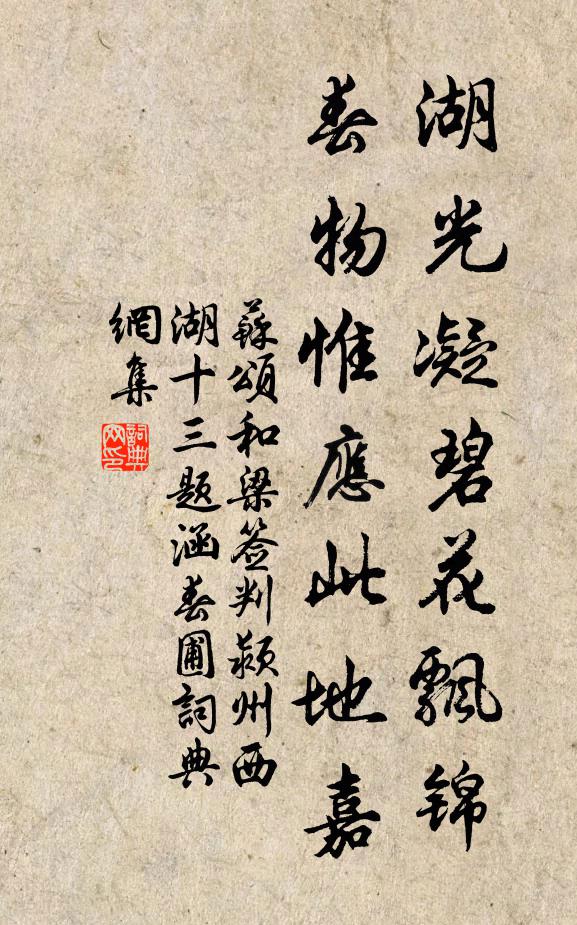 湖光凝碧花飄锦
春物惟應此地嘉
蘇頌和梁签判颍州西
湖十三题涵春圃詞典
網集
詞典
网印